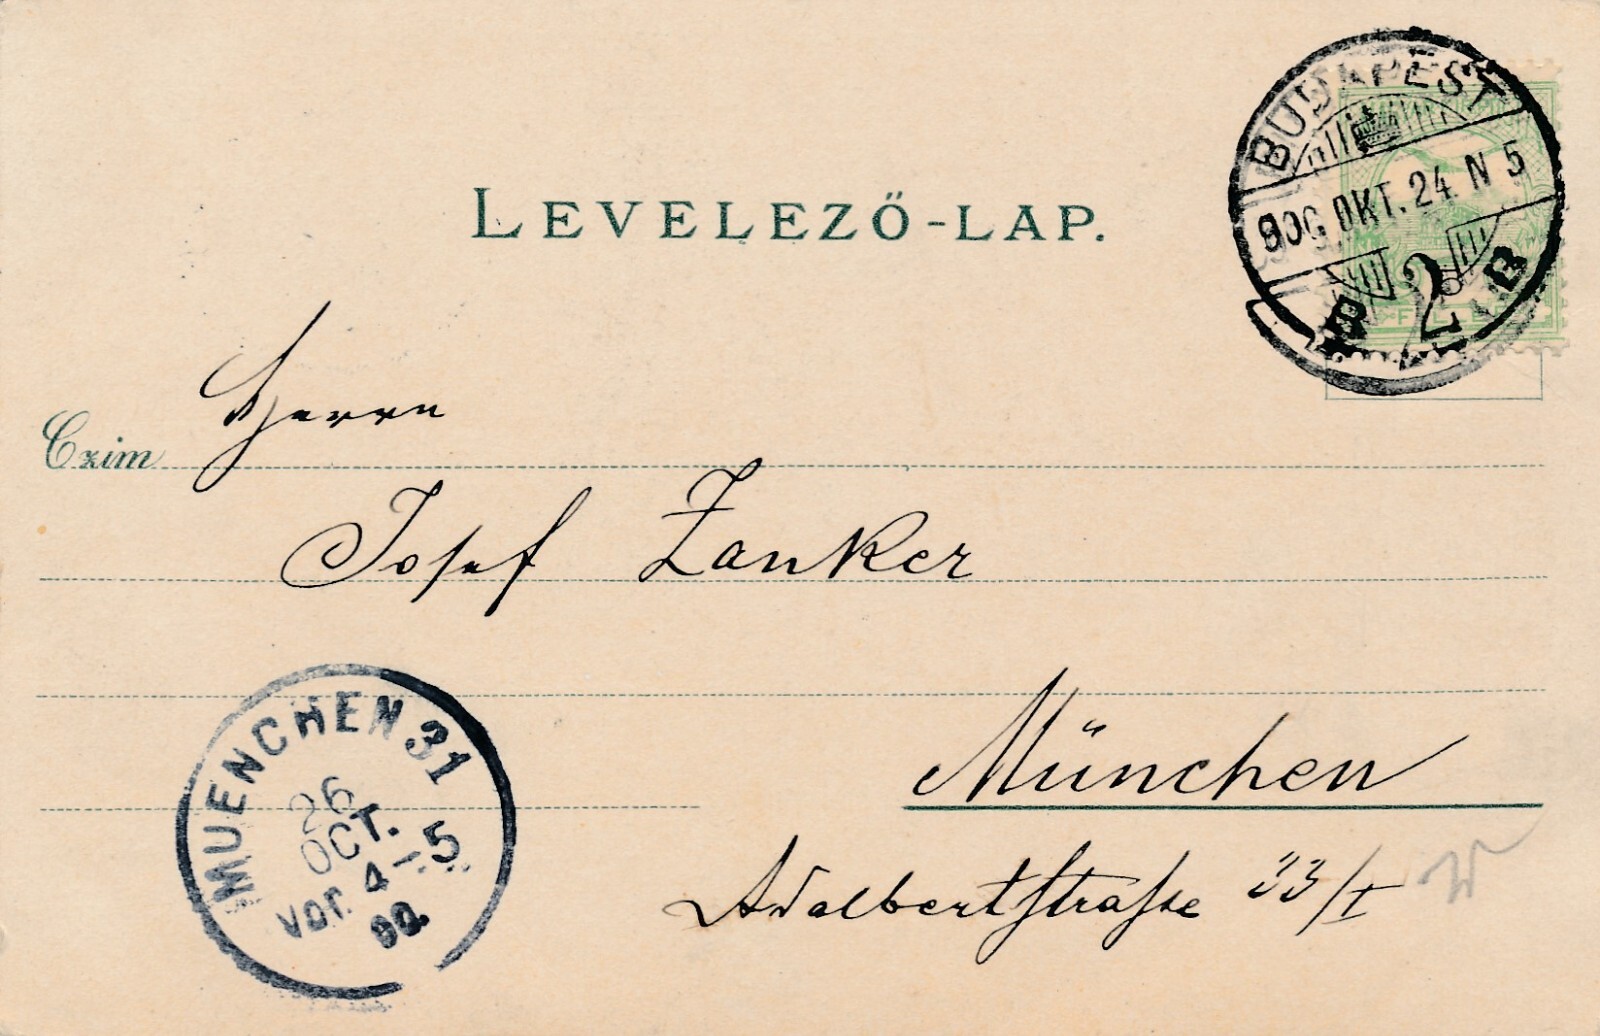 LEVELEZŐ-LAP.
BUDAPEST
900 OKT. 24. N 5
B 2 B
FILLÉR
Czim Herrn
Josef Zanker
München
Adalbertstraße 33/I
MUENCHEN 31
26
OCT.
Vor. 4-5
00.